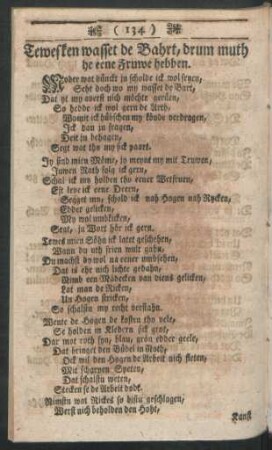 ( 134 )
Tewesken wasset de Bahrt, drum muth
he eene Fruwe hebben.
Moder wat dünckt ju scholde ick wol seyen,
Seht doch wo my wasset de Bart,
Dat yt my averst nich möchte
So hedde ick wol gern de Arth,
Womit ick hübschen my köude
Jck van ju fragen,
Heit in behagen,
Segt wat tho my sick paart.
Jy sind mien Möme, jy meynt my mit Truwen,
Juwen Rath folg ick gern,
Schal ick my holden tho euner
Eft leve ick eene Deren,
Segget mn, schold ick nah Hagen nah Rycken,
Edder gelicken,
My my umkicken,
Segt, ju Wort hör ick gern.
Tewes mien Söhn ick latet geschehen,
Wann du nth frien wult gahn,
Du machst dy wol na eener umbsehen,
Dat is ehr nich lichte gedahn,
Nimb een Mädeken van diens gelicken,
Lot man de Ricken,
Un Hogen stricken,
So schalstu my recht verstahn.
Wente de Hogen de kosten tho vele,
Se holden in Kledern sick grot,
Dar mot roth syn, blau, grön edder geele,
Dat bringet den Büdel in Noth,
Ock wil den Hogen de Arbeit nich
Mit scharpen Speten,
Dat schalstu weten,
Stecken se de Arbeit dodt.
Nimstu wat Rickes so bistu geschlagen,
Werst nich beholden den Hoht,
Kanst